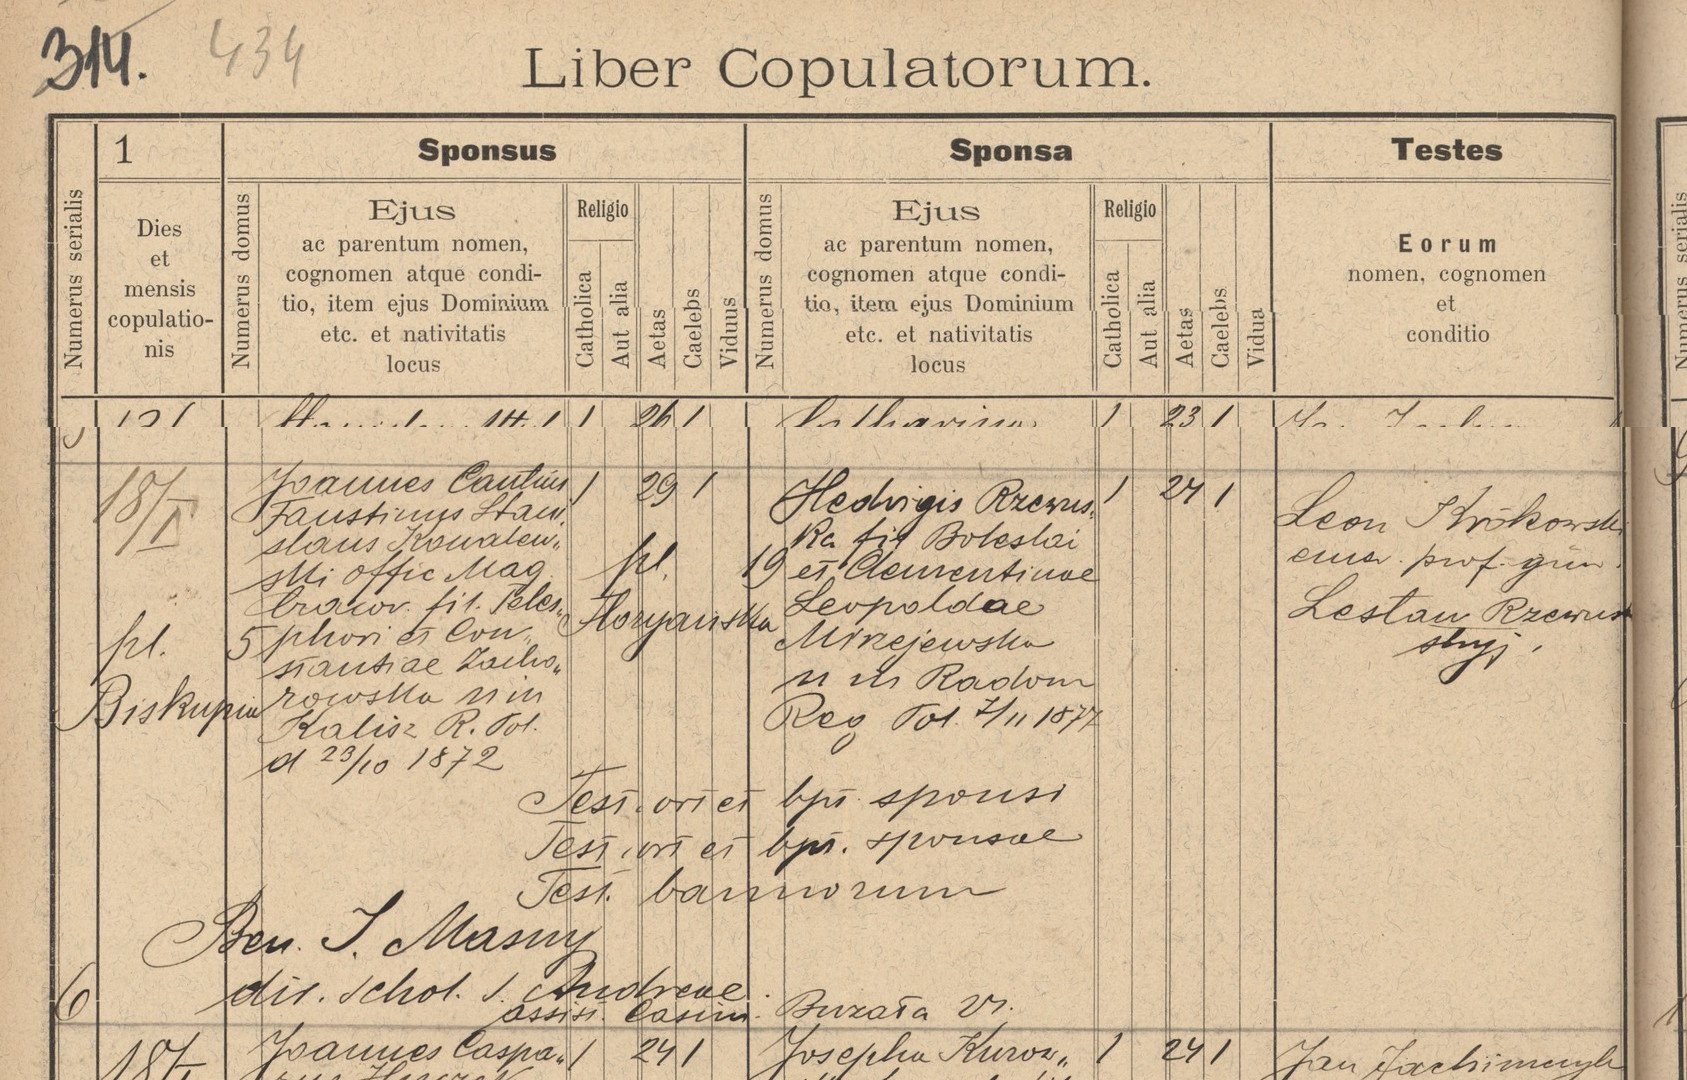 314. 434
Liber Copulatorum.
Numerus serialis
1
Dies
et
mensis
copulatio-
nis
Sponsus
Numerus domus
Ejus
ac parentum nomen,
cognomen atque condi-
tio, item ejus Dominium
etc. et nativitatis
locus
Religio
Catholica
Aut alia
Aetas
Caelebs
Viduus
Sponsa
Numerus domus
Ejus
ac parentum nomen,
cognomen atque condi-
tio, item ejus Dominium
etc. et nativitatis
locus
Religio
Catholica
Aut alia
Aetas
Caelebs
Vidua
Testes
Eorum
nomen, cognomen
et
conditio
Numerus serialis
26 1
23 1
18/I
pl. 5
Biskupia
Joannes Cantius
Faustinus Stani„
slaus Kowalew„
ski offic Mag
Cracov. fil. Teles„
phori et Con„
stantiae Zacho„
rowska n in
Kalisz R. Pol.
d 23/10 1872
1 29 1
pl. 19
Floryanska
Hedvigis Rzewus„
ka fil Boleslai
et Clementinae
Leopoldae
Mirzejewska
n in Radom
Reg Pol. 7/11 1877
1 24 1
Leon Krókowski
emer. prof. gim.
Lestaw Rzewus
Test. ort et bpt. sponsi
Test. ort et bpt. sponsae
Test. bannorum
Ben. J. Masny
dir. schol. s. Andreae
assist. Casim. Buzała Vr.
6
18/I
Joannes Caspa„
1 24 1
Josepha Kurow„
1 24 1
Jan Jachimczyk